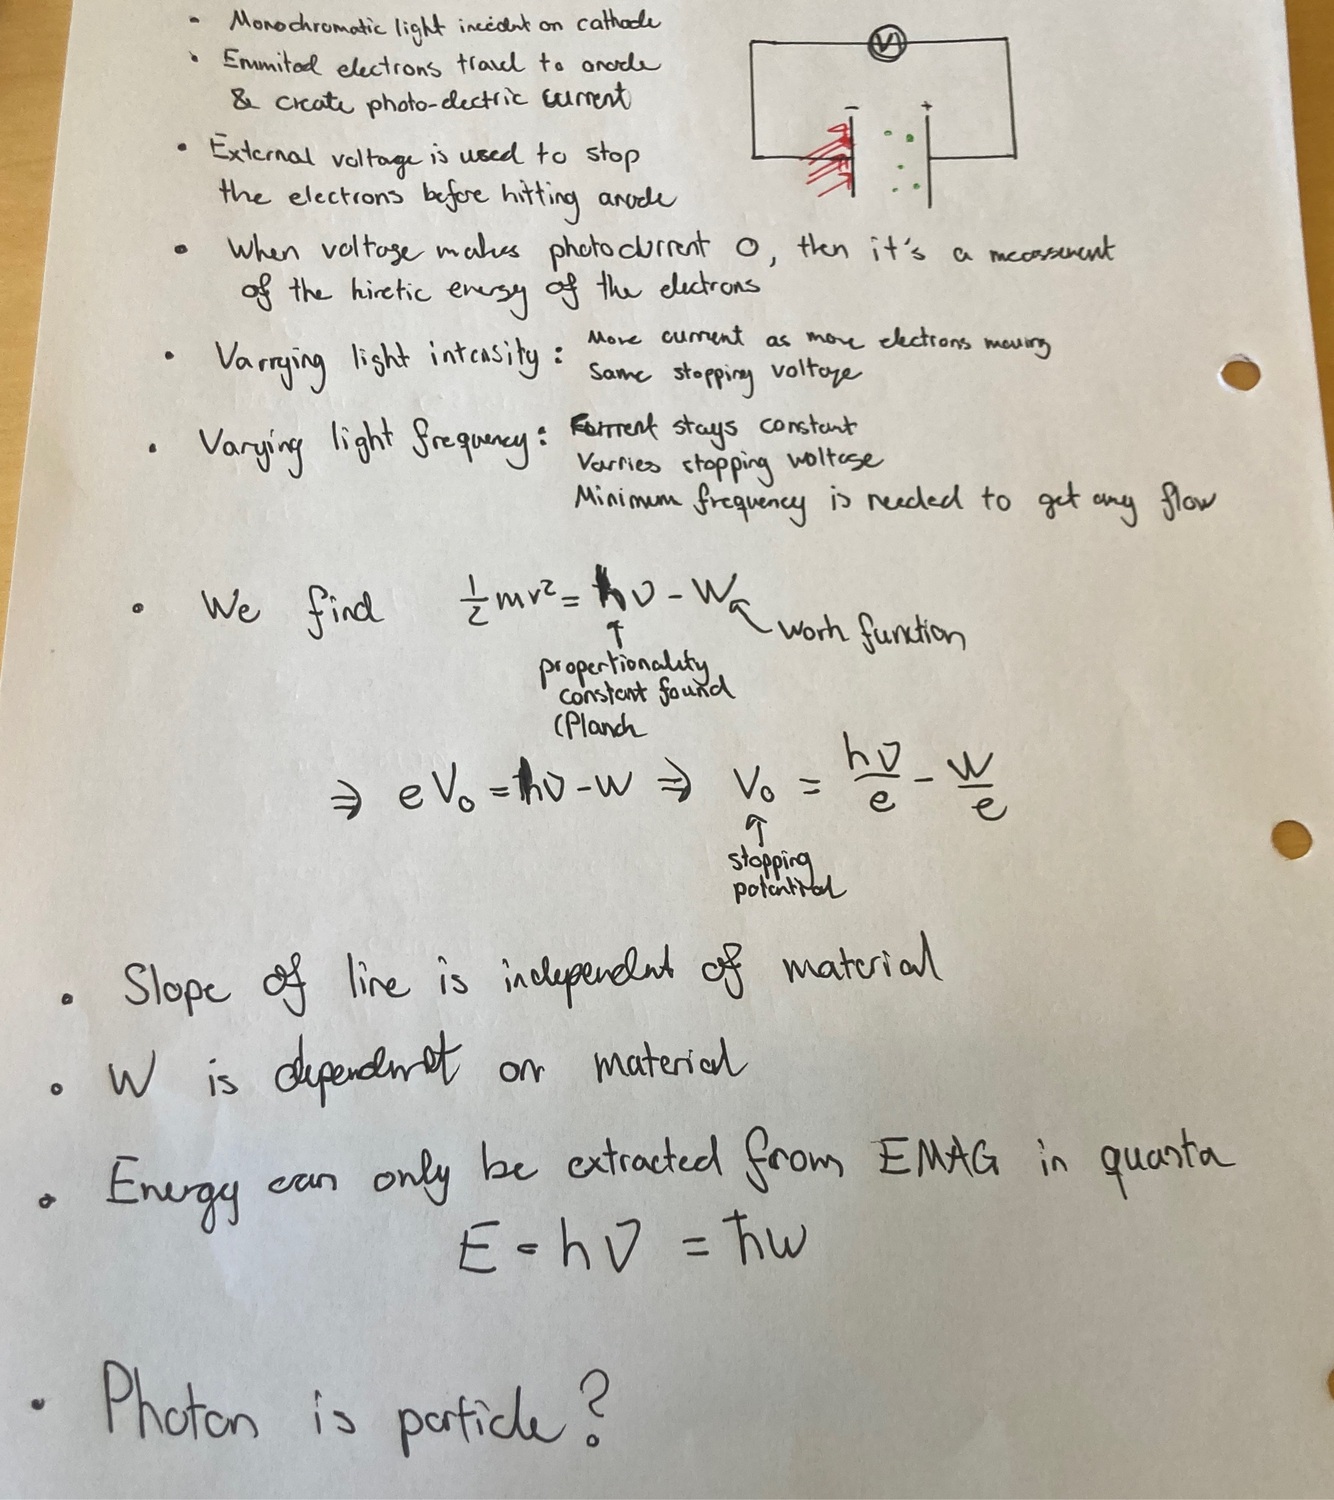 • Monochromatic light incident on cathode
• Emmited electrons travel to anode
& create photo-electric current
V
- +
• External voltage is used to stop
the electrons before hitting anode
• When voltage makes photocurrent 0, then it's a
of the kinetic energy of the electrons
• Varrying light intensity: More current as more electrons moving
Same stopping voltage
• Varying light frequency: Current stays constant
Varries stopping voltage
Minimum frequency is needed to get any flow
• We find ½mv² = hν - W
work function
↑
propertionality
constant found
(Planck
⇒ eV₀ = hν - W ⇒ V₀ = hν/e - W/e
↑
stopping
potential
• Slope of line is independent of material
• W is dependent on material
• Energy can only be extracted from EMAG in quanta
E = hν = ħω
• Photon is particle?